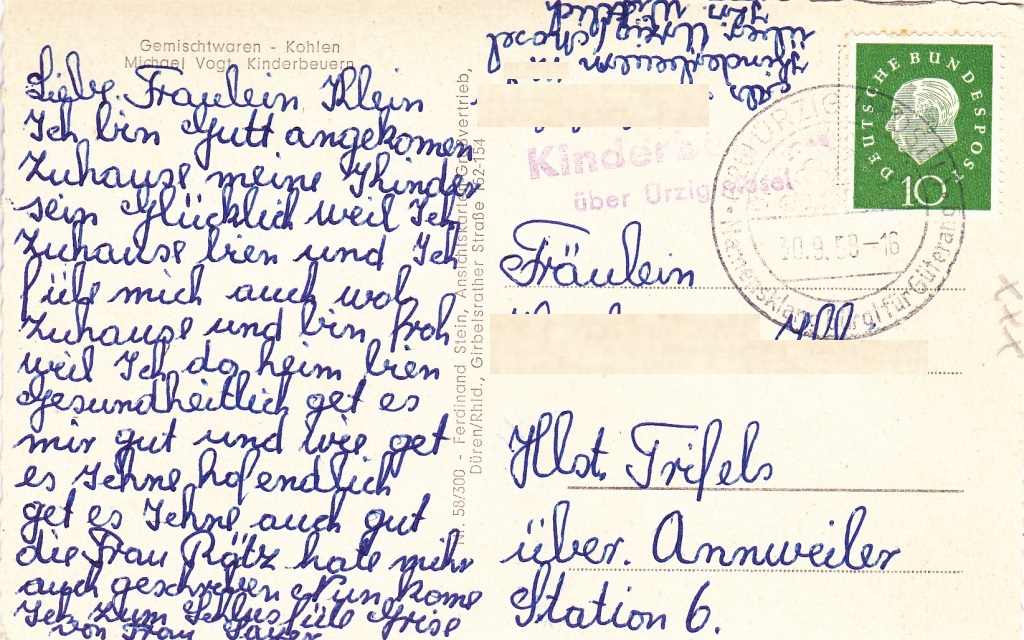 Gemischtwaren - Kohlen
Michael Vogt, Kinderbeuern
Liebe. Fräulein Klein
Ich bin Gutt angekomen
Zuhause meine Khinder
sein Glücklich weil Ich
Zuhause bien und Ich
fühl mich auch wol
Zuhause und bin froh
weil Ich da heim bien
Gesundheitlich get es
mir gut und wie get
es Iehne hofendlich
get es Iehne auch gut
die Frau Rätz hate mihr
auch geschreben Nun kome
Ich zum Schlus füle Grise
von Frau
Nr. 58/300 - Ferdinand Stein, Ansichtskarten-Großvertrieb,
Düren/Rhld., Girbelsrather Straße 62-154
Abs
Khinderbeuern
über. Ürzig/Mosel
über Ürzig/Mosel
DEUTSCHE BUNDESPOST
10
30.9.59-16
Fräulein
Hlst. Trifels
über. Annweiler
Station 6.